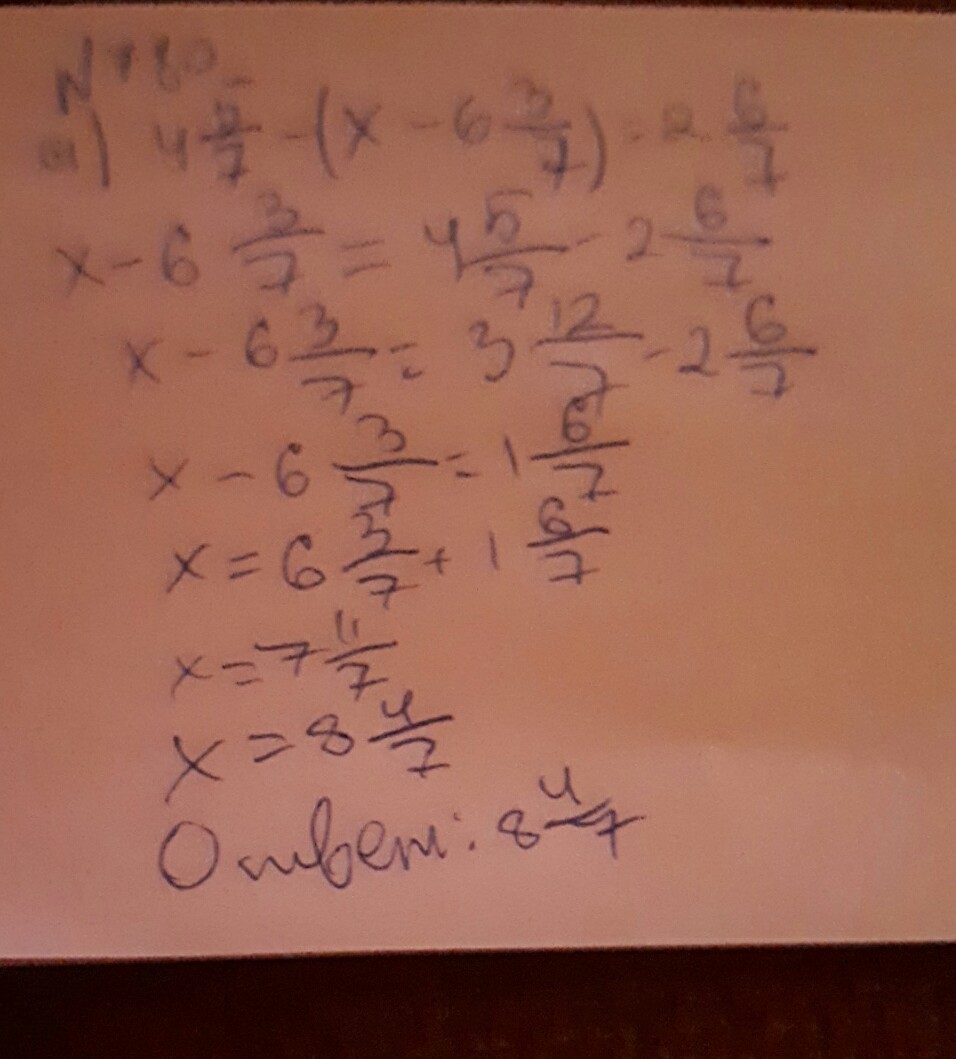 а) 4 5/7 - (x - 6 3/7) = 2 6/7
x - 6 3/7 = 4 5/7 - 2 6/7
x - 6 3/7 = 3 12/7 - 2 6/7
x - 6 3/7 = 1 6/7
x = 6 3/7 + 1 6/7
x = 7 11/7
x = 8 4/7
Ответ: 8 4/7